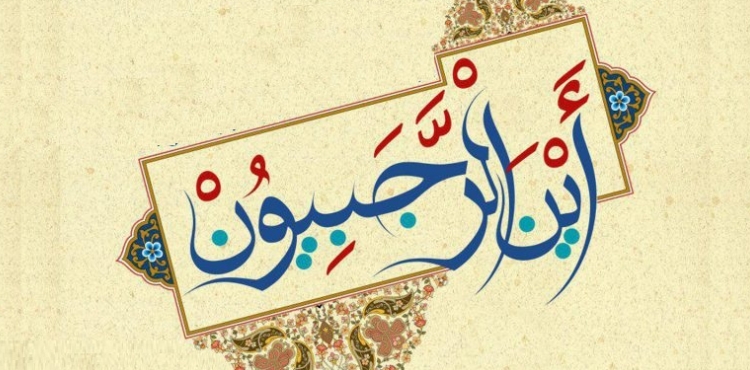 أَيْنَ الْرَّجَبِيوُنْ